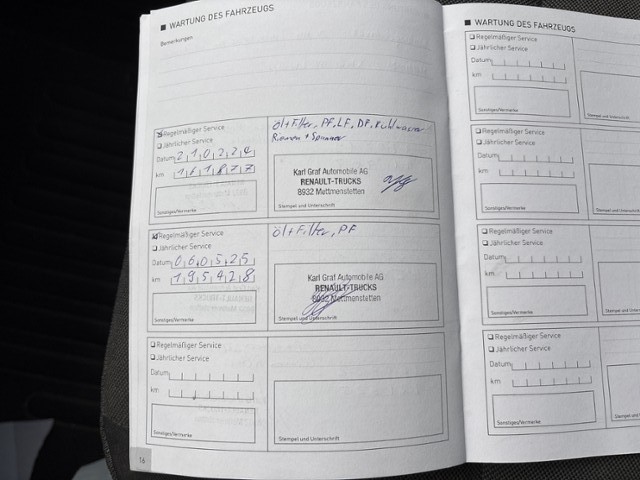 WARTUNG DES FAHRZEUGS
Bemerkungen
Regelmäßiger Service
Jährlicher Service
Datum 210224
km 161877
Sonstiges/Vermerke
Öl+Filter, PF, LF, DF, Kühlwasser
Riemen + Spanner
Karl Graf Automobile AG
RENAULT-TRUCKS
8932 Mettmenstetten
Stempel und Unterschrift
Regelmäßiger Service
Jährlicher Service
Datum 060525
km 195428
Sonstiges/Vermerke
Öl+Filter, PF
Karl Graf Automobile AG
RENAULT-TRUCKS
8932 Mettmenstetten
Stempel und Unterschrift
Regelmäßiger Service
Jährlicher Service
Datum
km
Sonstiges/Vermerke
Stempel und Unterschrift
16
WARTUNG DES FAHRZEUGS
Regelmäßiger Service
Jährlicher Service
Datum
km
Sonstiges/Vermerke
Stempel und Unterschrift
Regelmäßiger Service
Jährlicher Service
Datum
km
Sonstiges/Vermerke
Stempel und Unterschrift
Regelmäßiger Service
Jährlicher Service
Datum
km
Sonstiges/Vermerke
Stempel und Unterschrift
Regelmäßiger Service
Jährlicher Service
Datum
km
Sonstiges/Vermerke
Stempel und Unterschrift